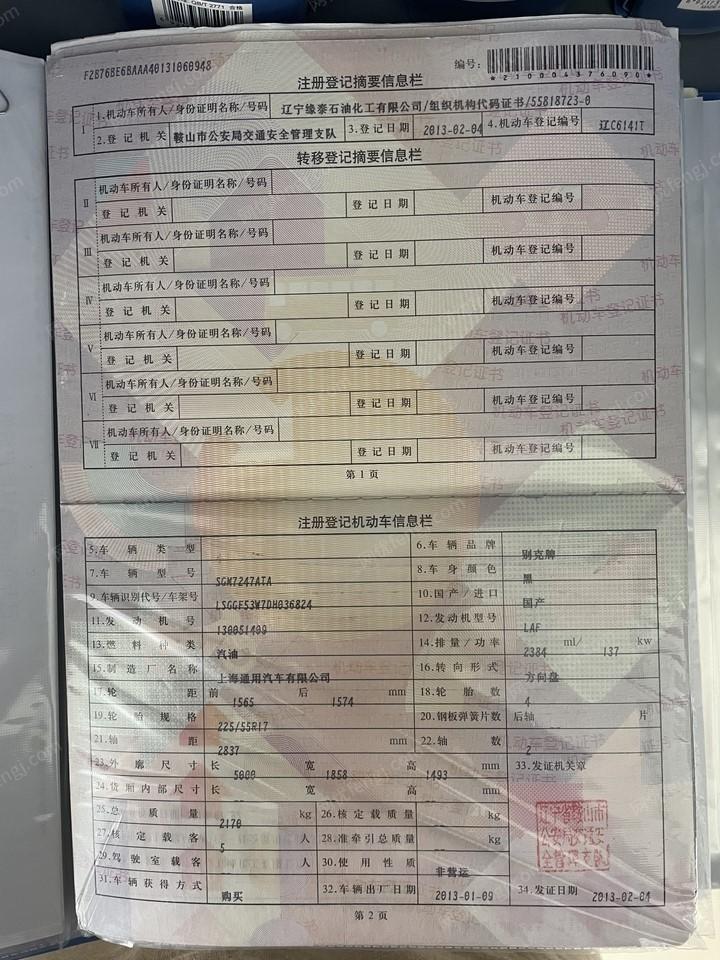 GB/T 2771 合格
F2B76BE6BAAA40131060948
编号:
*210004376090*
注册登记摘要信息栏
I
1.机动车所有人/身份证明名称/号码 辽宁缘泰石油化工有限公司/组织机构代码证书/55818723-0
2.登记机关 鞍山市公安局交通安全管理支队 3.登记日期 2013-02-04 4.机动车登记编号 辽C6141T
转移登记摘要信息栏
II 机动车所有人/身份证明名称/号码
登记机关 登记日期 机动车登记编号
III 机动车所有人/身份证明名称/号码
登记机关 登记日期 机动车登记编号
IV 机动车所有人/身份证明名称/号码
登记机关 登记日期 机动车登记编号
V 机动车所有人/身份证明名称/号码
登记机关 登记日期 机动车登记编号
VI 机动车所有人/身份证明名称/号码
登记机关 登记日期 机动车登记编号
VII 机动车所有人/身份证明名称/号码
登记机关 登记日期 机动车登记编号
第1页
注册登记机动车信息栏
5.车辆类型 6.车辆品牌 别克牌
7.车辆型号 SGM7247ATA 8.车身颜色 黑
9.车辆识别代号/车架号 LSGGF53W7DH036824 10.国产/进口 国产
11.发动机号 130051409 12.发动机型号 LAF
13.燃料种类 汽油 14.排量/功率 2384 ml/ 137 kw
15.制造厂名称 上海通用汽车有限公司 16.转向形式 方向盘
17.轮距 前 1565 后 1574 mm 18.轮胎数 4
19.轮胎规格 225/55R17 20.钢板弹簧片数 后轴 片
21.轴距 2837 mm 22.轴数 2
23.外廓尺寸 长 5000 宽 1858 高 1493 mm 33.发证机关章
24.货厢内部尺寸 长 宽 高 mm
25.总质量 2170 kg 26.核定载质量 kg
27.核定载客 5 人 28.准牵引总质量 kg
29.驾驶室载客 人 30.使用性质 非营运
31.车辆获得方式 购买 32.车辆出厂日期 2013-01-09 34.发证日期 2013-02-04
辽宁省鞍山市
公安局交通安
全管理支队
第2页